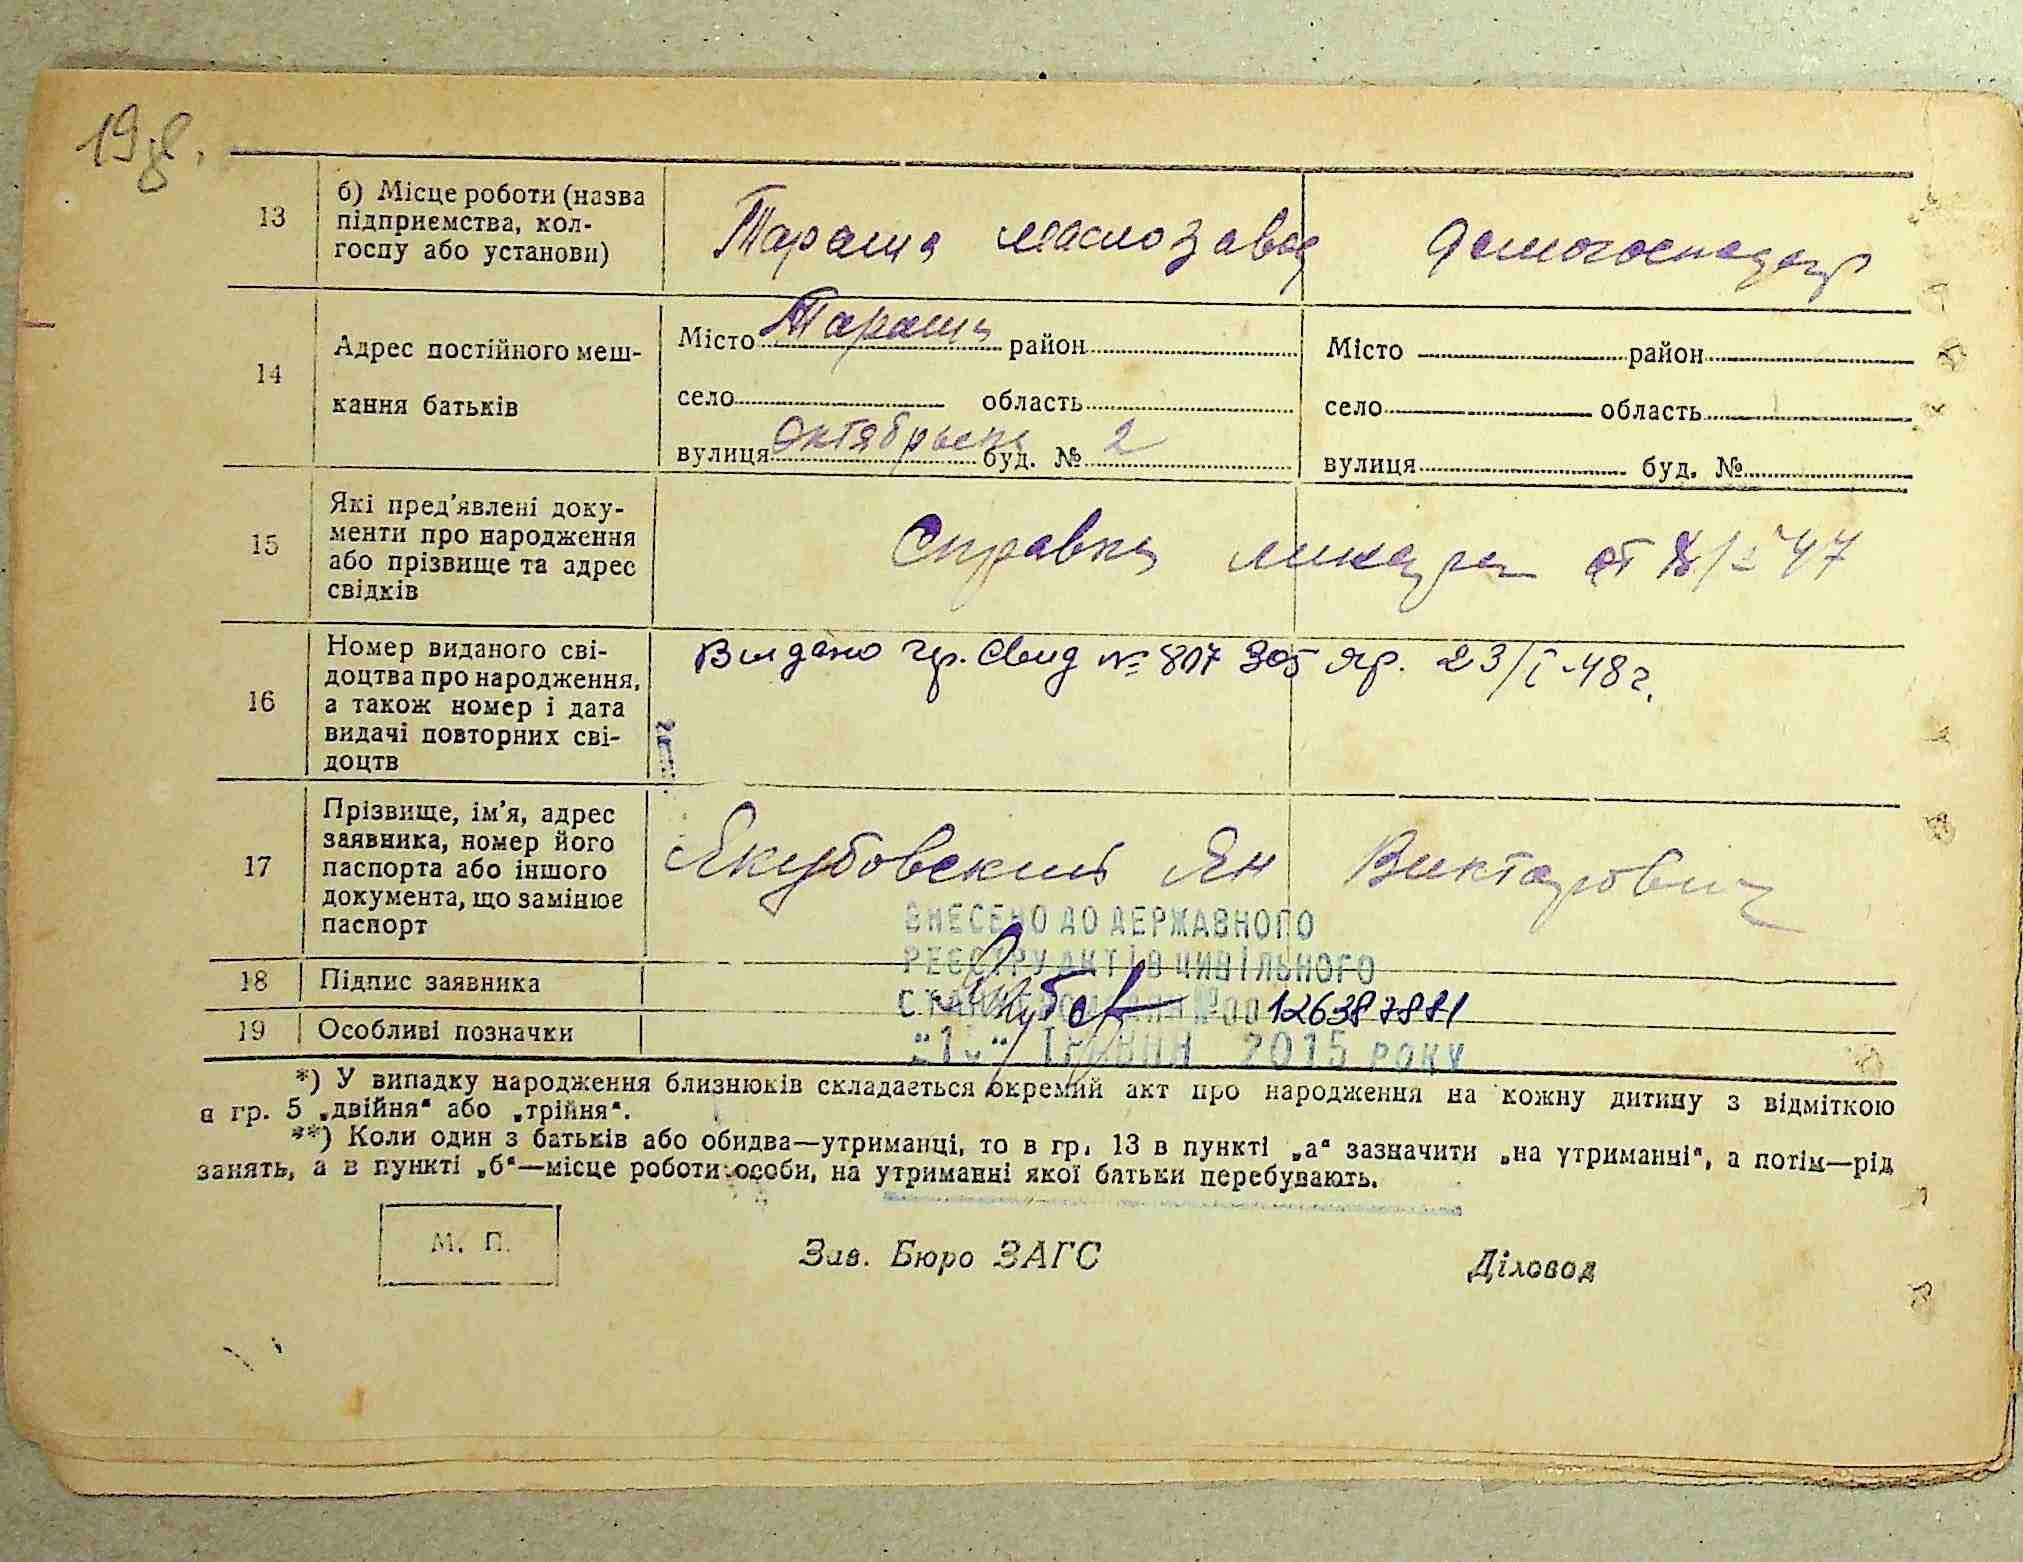 13
б) Місце роботи (назва
підприємства, кол-
госпу або установи)
Тараща маслозавод
Домогосподар
14
Адрес постійного меш-
кання батьків
Місто Тараща район
село область
вулиця Октябрьска буд. № 2
Місто район
село область
вулиця буд. №
15
Які пред'явлені доку-
менти про народження
або прізвище та адрес
свідків
Справка ликаря от 47
16
Номер виданого сві-
доцтва про народження,
а також номер і дата
видачі повторних сві-
доцтв
Видано гр. Свид № 807 305 яр. 23/I-48 г.
17
Прізвище, ім'я, адрес
заявника, номер його
паспорта або іншого
документа, що замінює
паспорт
Якубовский Ян Викторович
ВНЕСЕНО ДО ДЕРЖАВНОГО
РЕЄСТРУ АКТІВ ЦИВІЛЬНОГО
18
Підпис заявника
№00126387881
19
Особливі позначки
2015 РОКУ
*) У випадку народження близнюків складається окремий акт про народження на кожну дитину з відміткою
в гр. 5 „двійня“ або „трійня“.
**) Коли один з батьків або обидва—утриманці, то в гр. 13 в пункті „а“ зазначити „на утриманні“, а потім—рід
занять, а в пункті „б“—місце роботи особи, на утриманні якої батьки перебувають.
М. П.
Зав. Бюро ЗАГС
Діловод